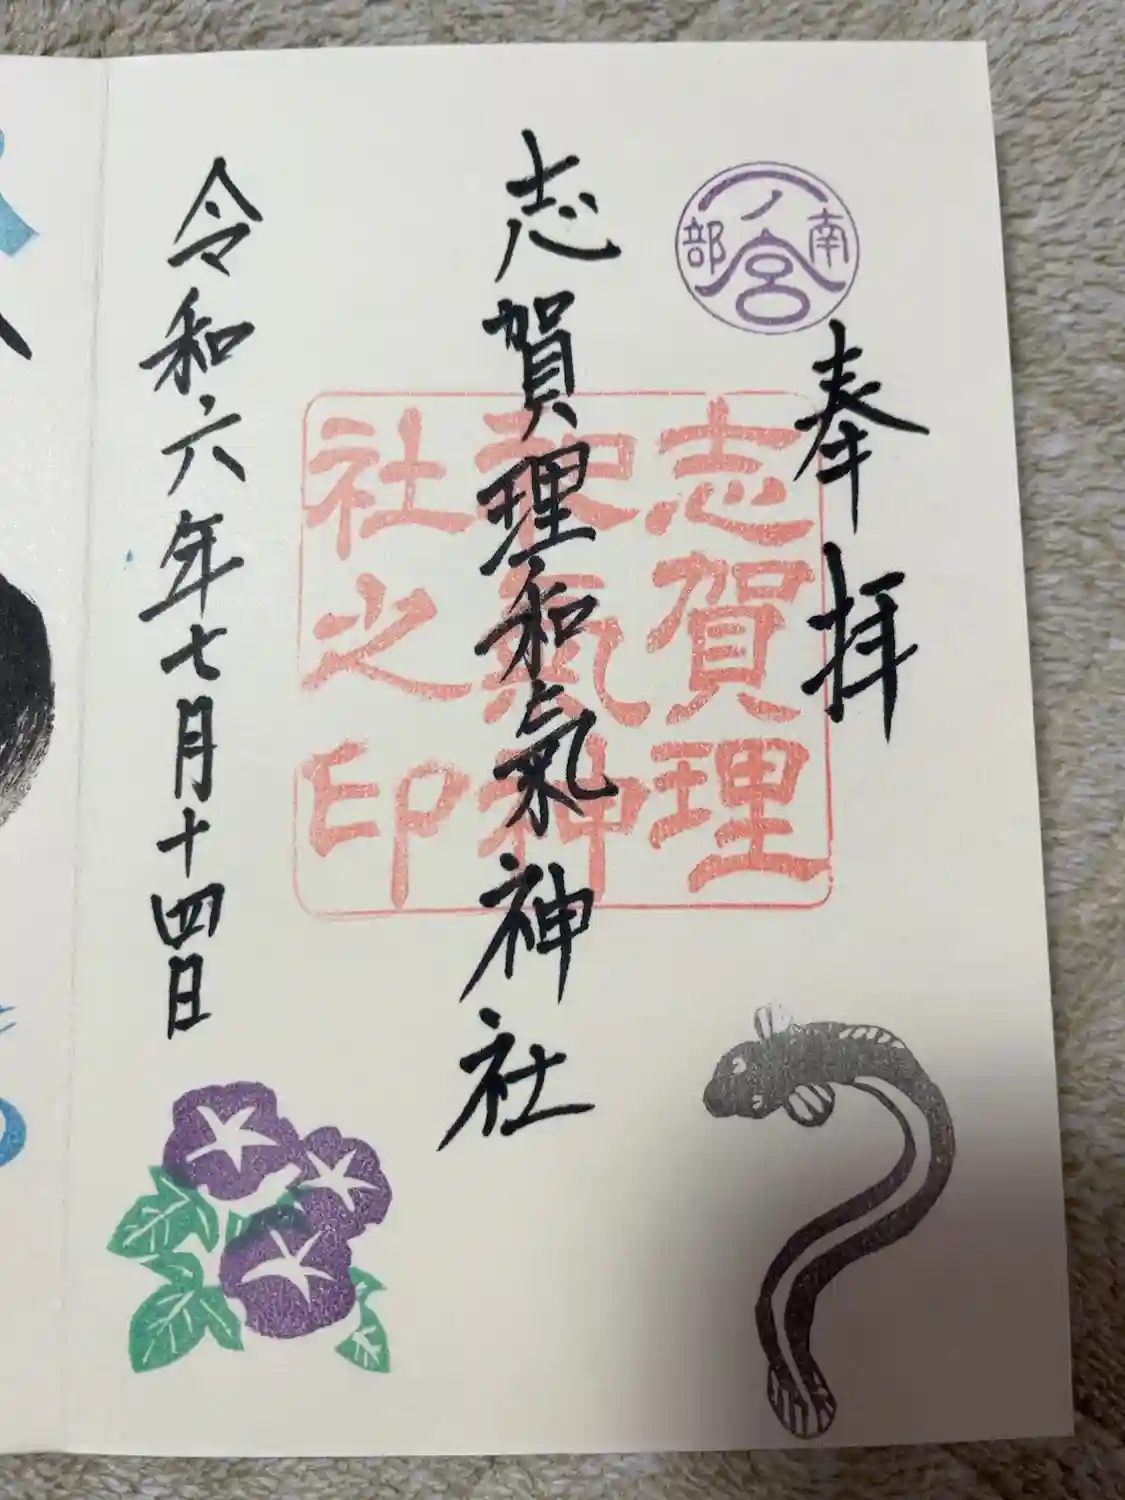 南部一ノ宮
奉拝
志賀理和氣神社
志賀理
和氣神
社之印
令和六年七月十四日